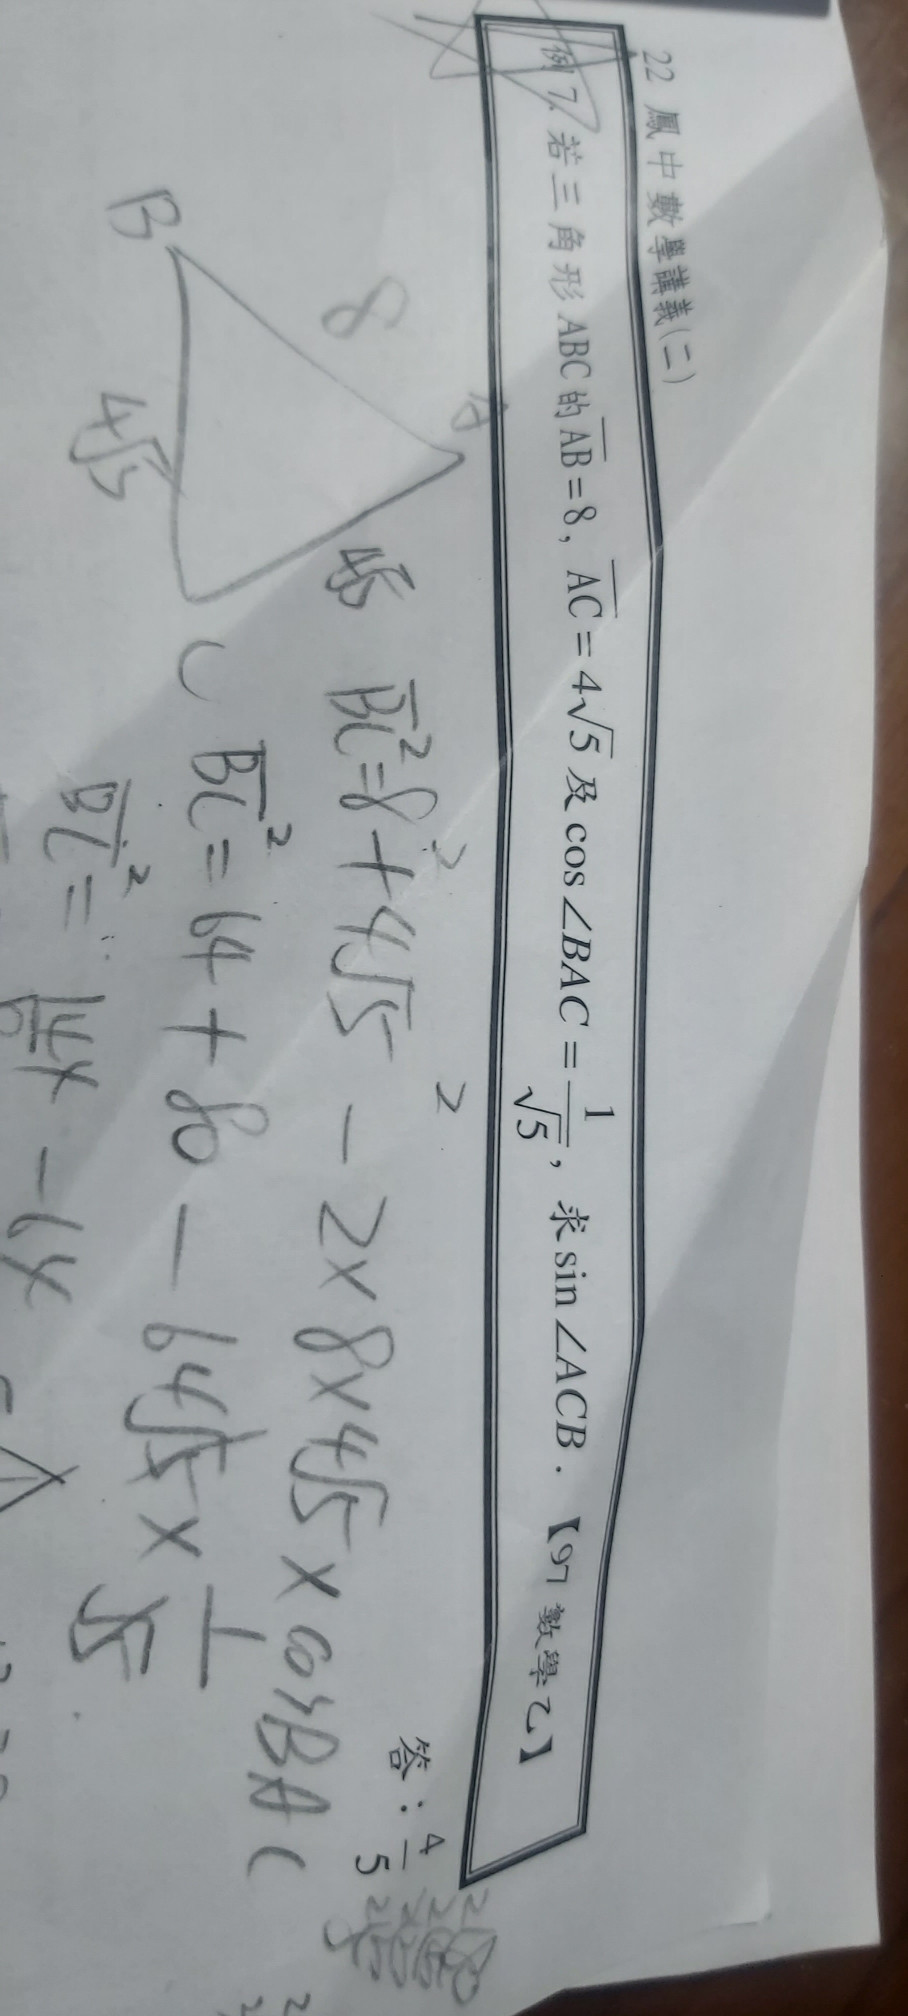 22 鳳中數學講義(二)
例 7. 若三角形 ABC 的 AB = 8, AC = 4√5 及 cos∠BAC = 1/√5, 求 sin∠ACB. 【97 數學乙】
答: 4/5
A
8
4√5
B
4√5
C
BC² = 8² + 4√5² - 2×8×4√5×cosBAC
BC² = 64 + 80 - 64√5 × 1/√5
BC² = 144 - 64